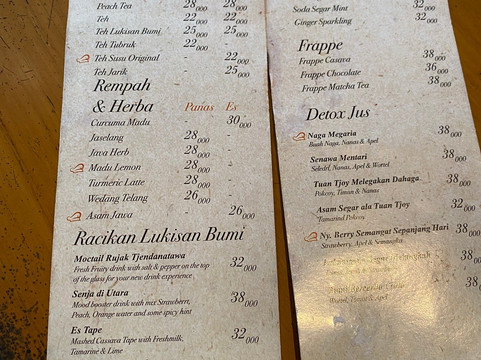 Peach Tea 28000 28000
Teh 22000 22000
Teh Lukisan Bumi 25000 25000
Teh Tubruk 22000 -
Teh Susu Original - 22000
Teh Jarik - 25000
Rempah
& Herba Panas Es
Curcuma Madu - 30000
Jaselang 28000 -
Java Herb 28000 -
Madu Lemon 28000 -
Turmeric Latte 28000 -
Wedang Telang 26000 -
Asam Jawa - 26000
Racikan Lukisan Bumi
Moctail Rujak Tjendanatawa 32000
Fresh Fruity drink with salt & pepper on the top
of the glass for your new drink experience
Senja di Utara 38000
Mood booster drink with mix Strawberry,
Peach, Orange water and some spicy hint
Es Tape 32000
Mashed Cassava Tape with Freshmilk,
Tamarine & Lime
Soda Segar Mint 32000
Ginger Sparkling 32000
Frappe
Frappe Casava 38000
Frappe Chocolate 36000
Frappe Matcha Tea 38000
Detox Jus
Naga Megaria 38000
Buah Naga, Nanas & Apel
Senawa Mentari 38000
Seledri, Nanas, Apel & Wortel
Tuan Tjoy Melegakan Dahaga 38000
Pokcoy, Timun & Nanas
Asam Segar ala Tuan Tjoy 32000
Tamarind Pokcoy
Ny. Berry Semangat Sepanjang Hari 38000
Strawberry, Apel & Semangka
38000
38000
& Apel